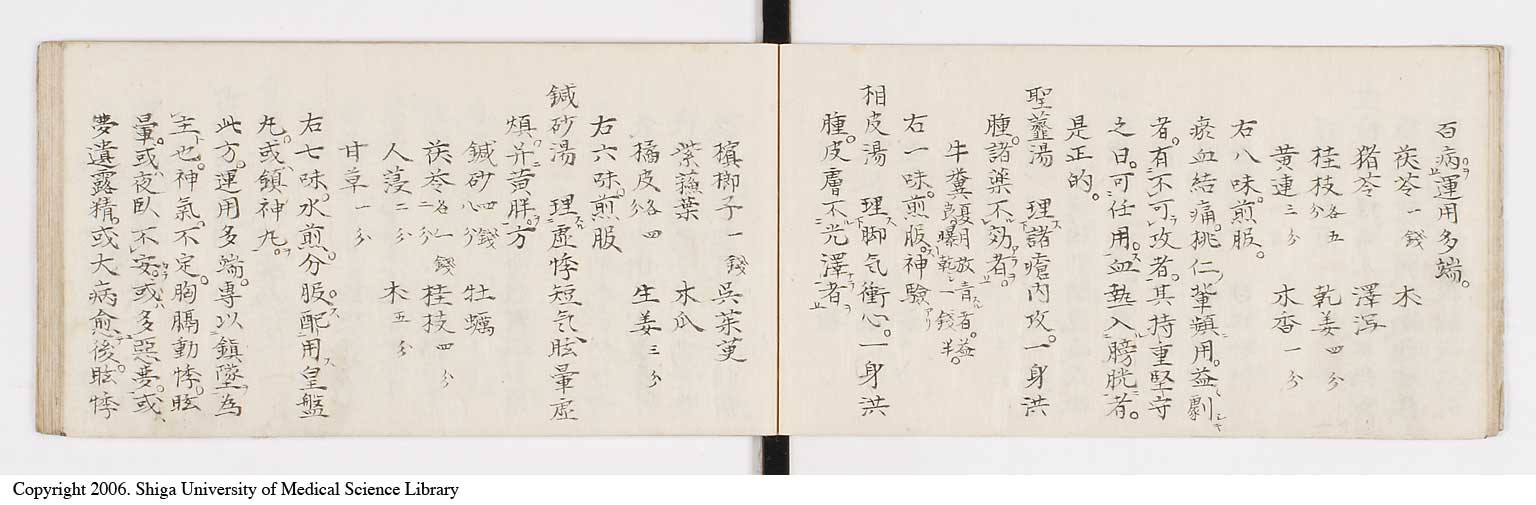 百病運用多端。
茯苓一錢 朮
猪苓 澤瀉
桂枝各五分 乾姜四分
黄連三分 木香一分
右八味。煎服。
瘀血結痛。桃仁ノ輩頻用。益劇シキ
者。有不可攻者。其持重堅守
之日。可任用。血熱入膀胱者。
是正的。
聖虀湯 理諸瘡内攻。一身洪
腫。諸藥不効者。
牛糞夏月放青者。益良曝乾一錢半。
右一味。煎服。神驗アリ
相皮湯 理脚气衝心。一身洪
腫。皮膚不光澤者
檳榔子一錢 呉茱萸
紫蘓葉 木瓜
橘皮各四分 生姜三分
右六味。煎服
鍼砂湯 理虚悸短气眩暈虚
煩并黄胖。方
鍼砂四錢八分 牡蠣
茯苓各一錢二分 桂枝四分
人葠二分 朮五分
甘草一分
右七味。水煎。分服。配用皇盤
丸。或鎮神丸。
此方。運用多端。專以鎮墜為
主也。神氣不定。胸膈動悸。眩
暈。或夜臥不安。或多惡夢。或
夢遺露精。或大病愈後。眩悸
Copyright 2006. Shiga University of Medical Science Library